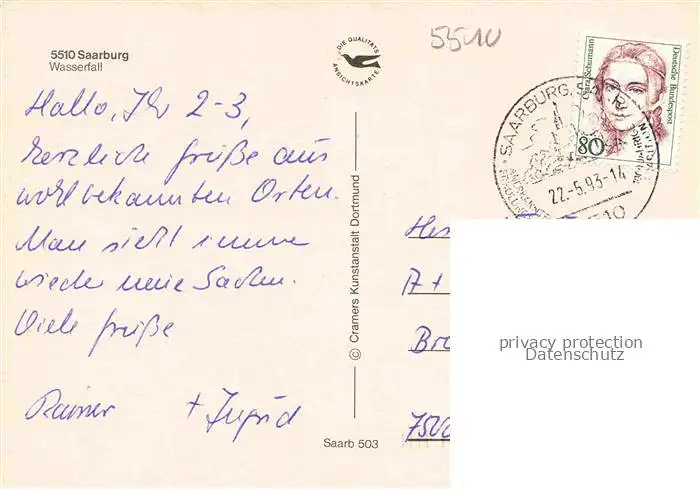 5510 Saarburg
Wasserfall
DIE QUALITÄTS
ANSICHTSKARTE
5510
Clara Schumann
Deutsche Bundespost
80
SAARBURG
22.-5.93-14
Hallo, Ihr 2-3,
herzliche Grüße aus
wohlbekannten Orten.
Man sieht immer
wieder neue Sachen.
Viele Grüße
Rainer + Ingrid
© Cramers Kunstanstalt Dortmund
Saarb 503
A +
privacy protection
Datenschutz